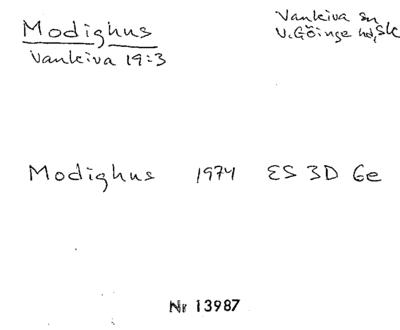 Modighus
Vankiva 19:3
Vankiva sn
V. Göinge hd, Sk
Modighus 1974 ES 3D 6e
Nr 13987